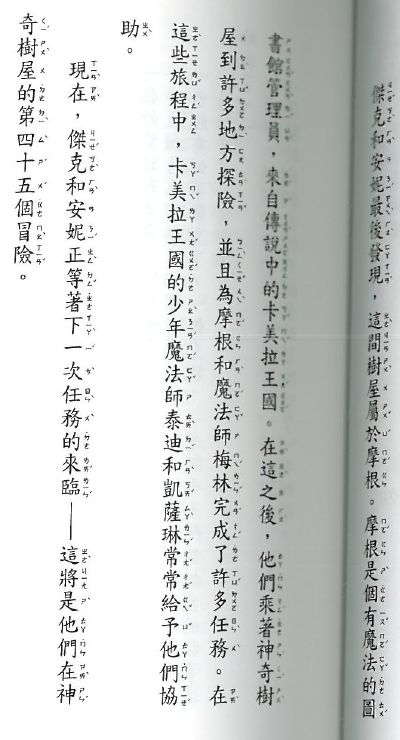 傑克和安妮最後發現，這間樹屋屬於摩根。摩根是個有魔法的圖
書館管理員，來自傳說中的卡美拉王國。在這之後，他們乘著神奇樹
屋到許多地方探險，並且為摩根和魔法師梅林完成了許多任務。在
這些旅程中，卡美拉王國的少年魔法師泰迪和凱薩琳常常給予他們協
助。
現在，傑克和安妮正等著下一次任務的來臨——這將是他們在神
奇樹屋的第四十五個冒險。